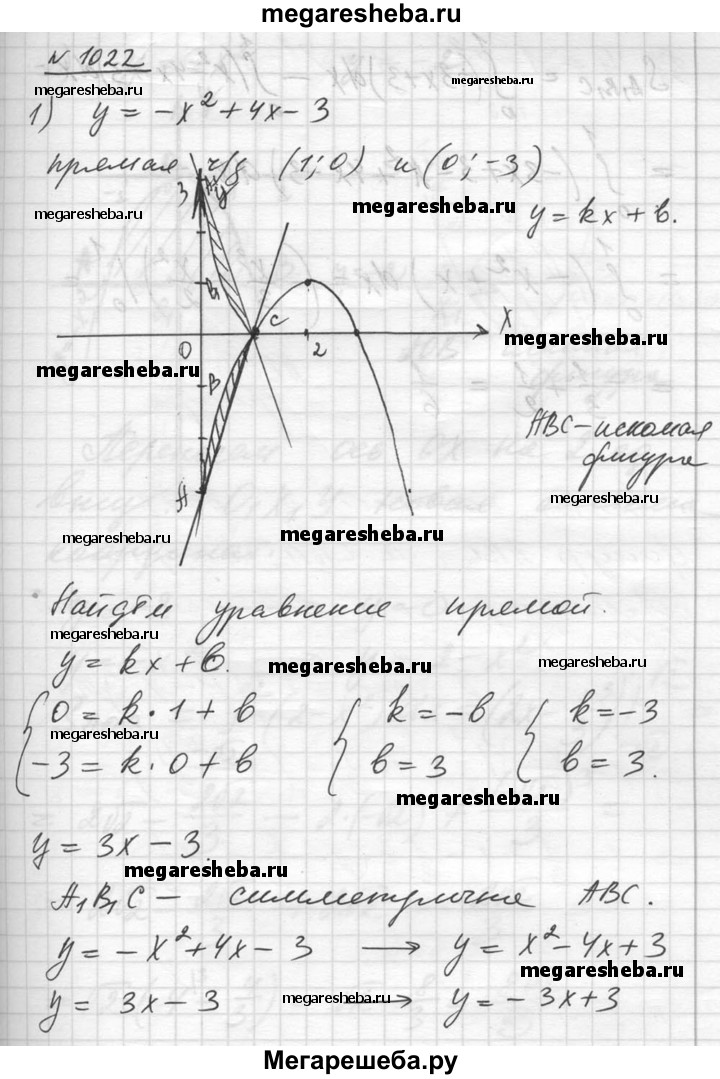 megaresheba.ru
N 1022
megaresheba.ru
megaresheba.ru
1) y = -x² + 4x - 3
прямая ч/з (1; 0) и (0; -3)
megaresheba.ru
megaresheba.ru
y = kx + b.
3
y
B₁
C
x
megaresheba.ru
0
2
megaresheba.ru
B
ABC - искомая
фигура
megaresheba.ru
A
megaresheba.ru
megaresheba.ru
megaresheba.ru
Найдём уравнение прямой.
megaresheba.ru
y = kx + b.
megaresheba.ru
megaresheba.ru
{ 0 = k · 1 + b { k = -b { k = -3
megaresheba.ru
-3 = k · 0 + b b = 3 b = 3.
megaresheba.ru
y = 3x - 3.
megaresheba.ru
A₁B₁C - симметрична ABC.
y = -x² + 4x - 3 → y = x² - 4x + 3
megaresheba.ru
y = 3x - 3 → y = -3x + 3
megaresheba.ru
Мегарешеба.ру